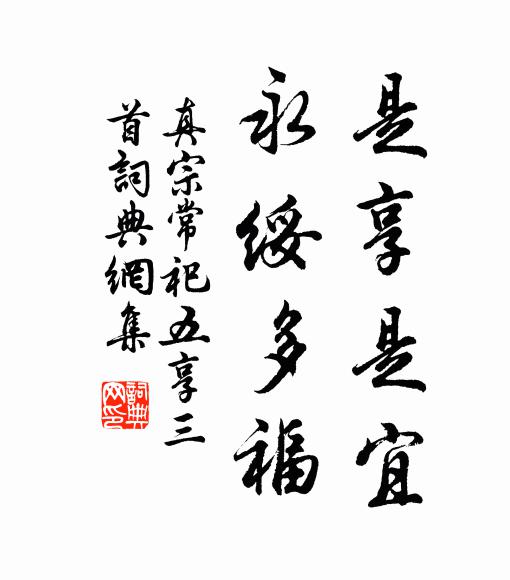 是享是宜
永綏多福
真宗常祀五享三
首詞典網集
詞典
网印